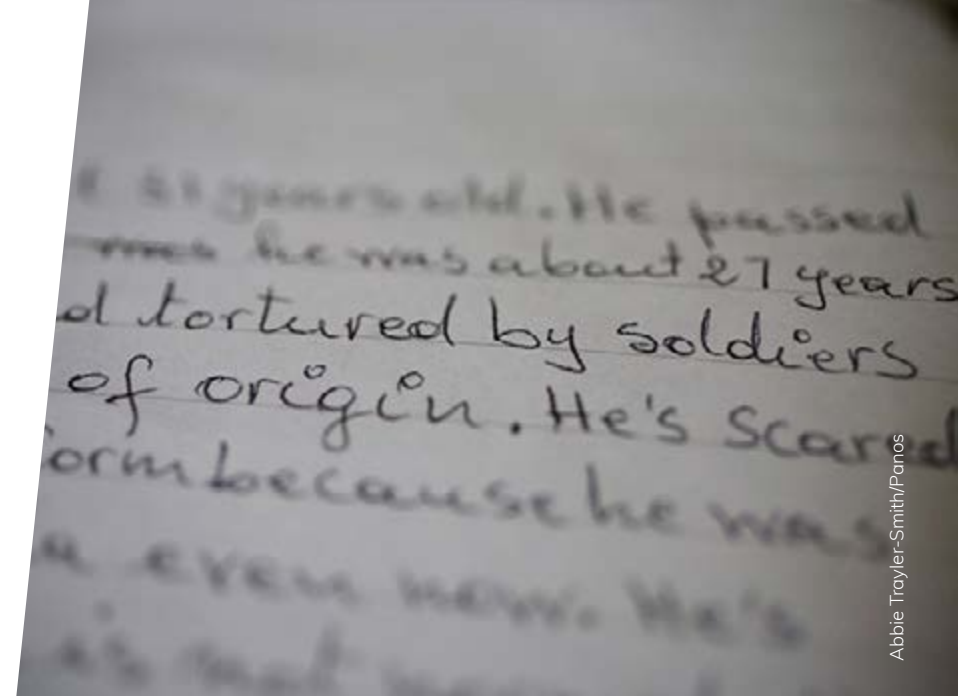 years old. He passed
he was about 27 years
d tortured by soldiers
of origin. He's scared
orm because he was
a even now. He's
is not
Abbie Trayler-Smith/Panos